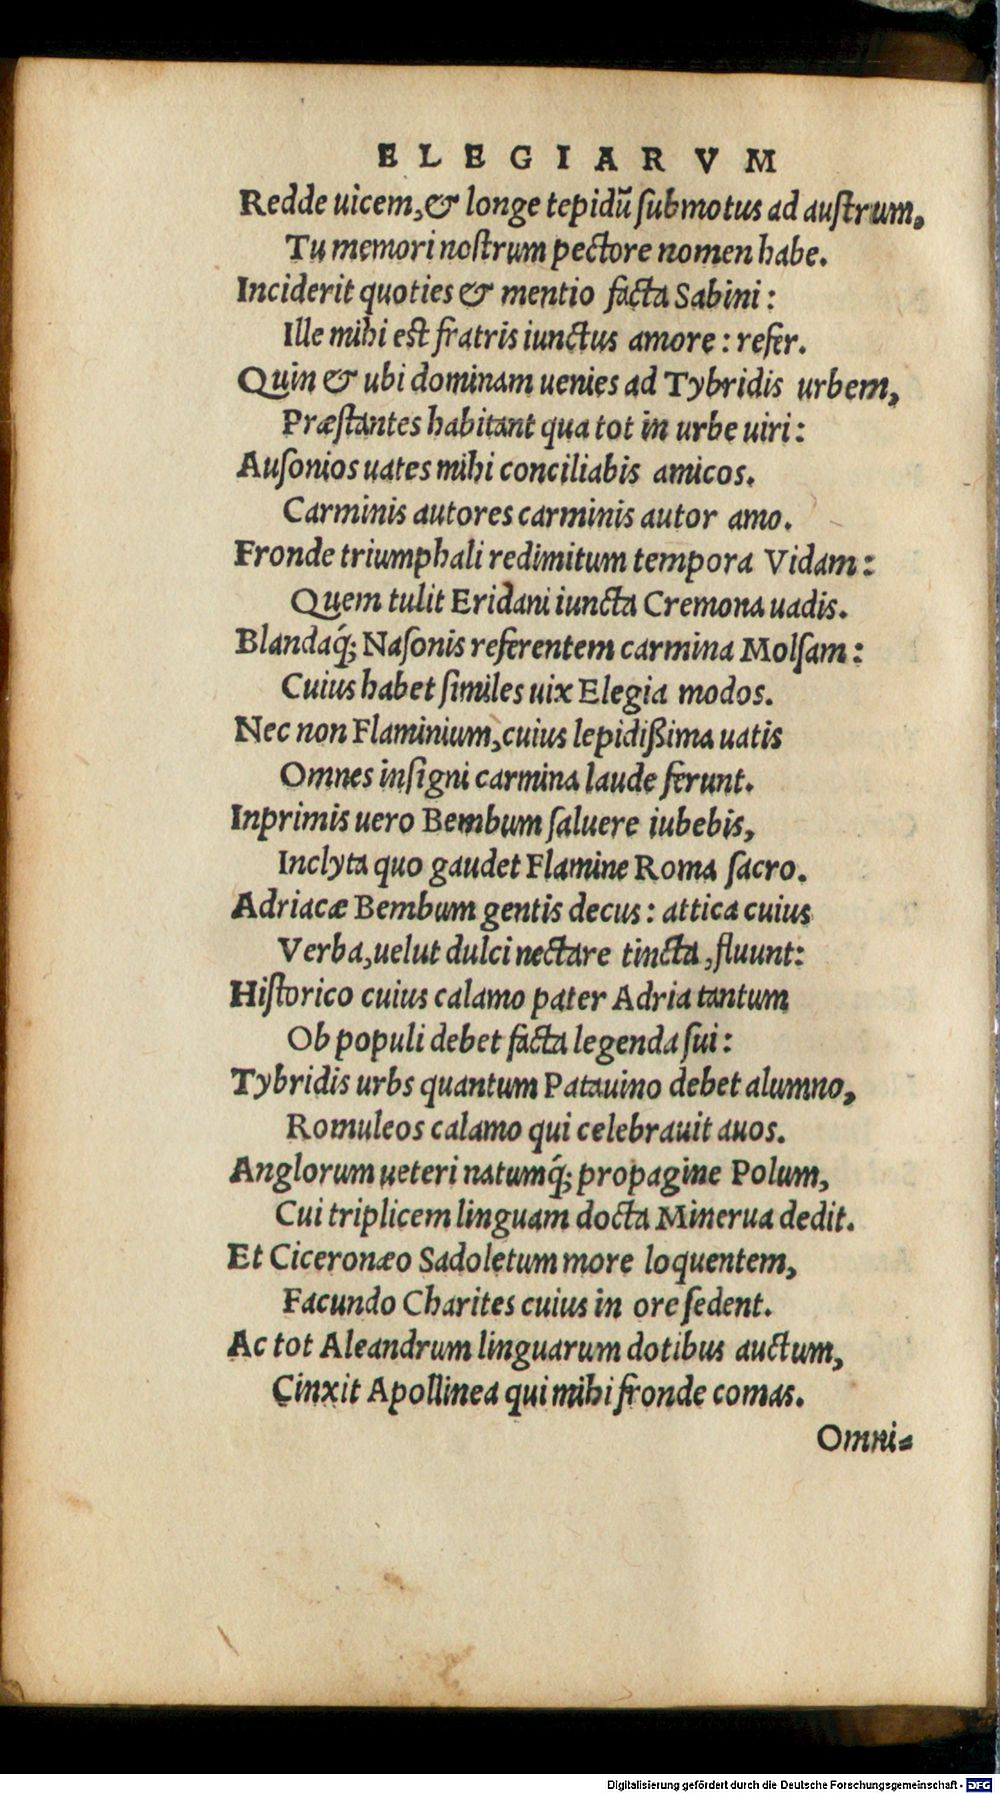 ELEGIARVM
Redde uicem, & longe tepidũ ſubmotus ad auſtrum,
Tu memori noſtrum pectore nomen habe.
Inciderit quoties & mentio facta Sabini:
Ille mihi eſt fratris iunctus amore: refer.
Quin & ubi dominam uenies ad Tybridis urbem,
Præſtantes habitant qua tot in urbe uiri:
Auſonios uates mihi conciliabis amicos.
Carminis autores carminis autor amo.
Fronde triumphali redimitum tempora Vidam:
Quem tulit Eridani iuncta Cremona uadis.
Blandaq́; Naſonis referentem carmina Molſam:
Cuius habet ſimiles uix Elegia modos.
Nec non Flaminium, cuius lepidiſsima uatis
Omnes inſigni carmina laude ferunt.
Inprimis uero Bembum ſaluere iubebis,
Inclyta quo gaudet Flamine Roma ſacro.
Adriacæ Bembum gentis decus: attica cuius
Verba, uelut dulci nectare tincta, fluunt:
Hiſtorico cuius calamo pater Adria tantum
Ob populi debet facta legenda ſui:
Tybridis urbs quantum Patauino debet alumno,
Romuleos calamo qui celebrauit auos.
Anglorum ueteri natumq́; propagine Polum,
Cui triplicem linguam docta Minerua dedit.
Et Ciceronæo Sadoletum more loquentem,
Facundo Charites cuius in ore ſedent.
Ac tot Aleandrum linguarum dotibus auctum,
Cinxit Apollinea qui mihi fronde comas.
Omni-
Digitalisierung gefördert durch die Deutsche Forschungsgemeinschaft - DFG